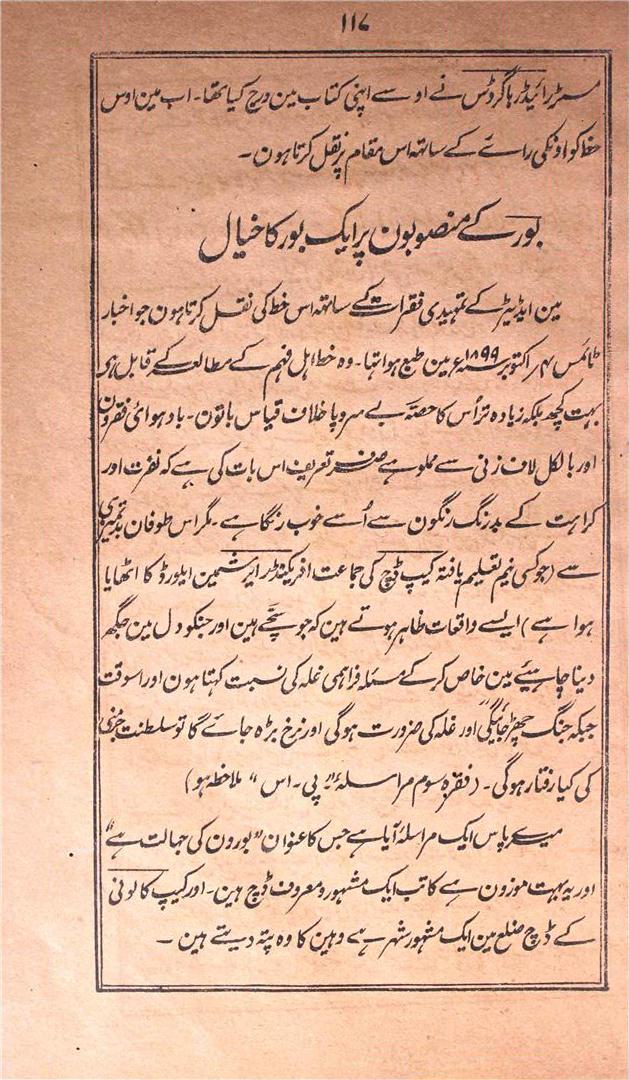 ۱۱۷
مسٹر رائیڈر ہاگرڈس نے اوسے اپنی کتاب مین درج کیا تھا۔ اب مین اوس
خط کو اونکی رائے کے ساتھ اس مقام پر نقل کرتا ہون۔
بور کے منصوبون پر ایک بور کا خیال
مین ایڈیٹر کے تمہیدی فقرات کے ساتھ اس خط کی نقل کرتا ہون جو اخبار
ٹائمس اکتوبر سنہ ۱۸۹۹ء مین طبع ہوا تھا۔ وہ خط اہل فہم کے مطالعہ کے قابل ہی
بہت کچھ بلکہ زیادہ تر اُس کا حصہ بے سروپا خلاف قیاس باتون۔ باد ہوائی فقرون
اور بالکل لاف زنی سے مملو ہے صرف تعریف اس بات کی ہے کہ نفرت اور
کراہت کے بدرنگ رنگون سے اُسے خوب رنگا ہے۔ مگر اس طوفان بدتمیزی
سے (جو کسی نیم تعلیم یافتہ کیپ ڈچ کی جماعت افریکینڈر ایورشمین ایلورڈ کا اٹھایا
ہوا ہے) ایسے واقعات ظاہر ہوتے ہین کہ جو سچّے ہین اور جنکو دل مین جگہ
دینا چاہیئے مین خاص کر کے مسئلہ فراہمی غلہ کی نسبت کہتا ہون اور اسوقت
جبکہ جنگ چھڑ جائیگی اور غلہ کی ضرورت ہوگی اور نرخ بڑہ جائے گا تو سلطنت جرمنی
کی کیا رفتار ہوگی۔ (فقرہ سوم مراسلہ "پی۔ اس" ملاحظہ ہو)
میرے پاس ایک مراسلہ آیا ہے جس کا عنوان "بورون کی جہالت ہے"
اور یہ بہت موزون ہے کاتب ایک مشہور و معروف ڈچ ہین۔ اور کیپ کالونی
کے ڈچ ضلع مین ایک مشہور شہر ہے وہین کا وہ پتہ دیتے ہین۔